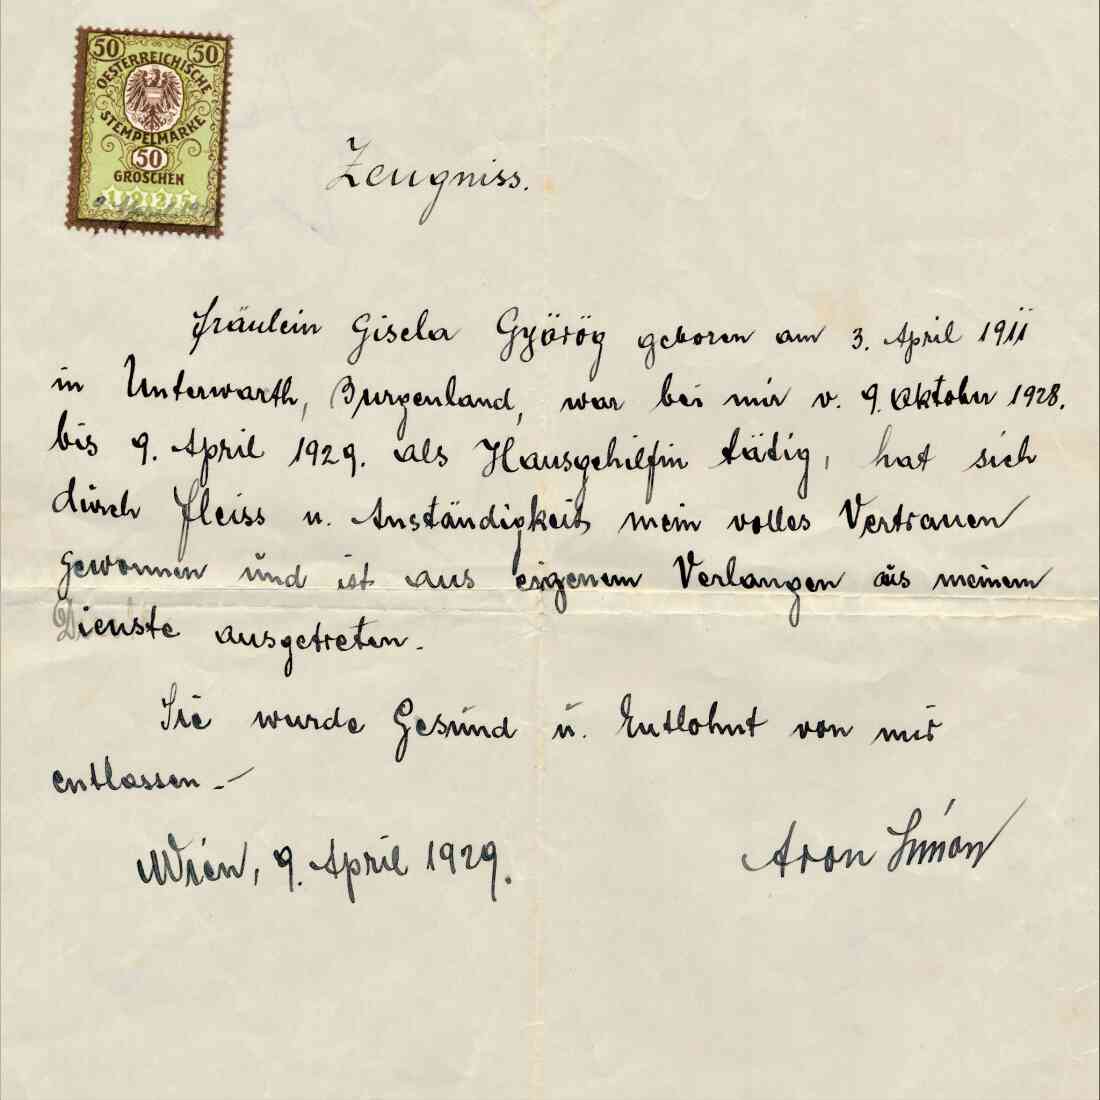 50 50
OESTERREICHISCHE
STEMPELMARKE
50
GROSCHEN
1925
9. April 1929
Zeugniss.
Fräulein Gisela Györög geboren am 3. April 1911
in Unterwarth, Burgenland, war bei mir v. 9. Oktober 1928.
bis 9. April 1929. als Hausgehilfin tätig, hat sich
durch Fleiss u. Anständigkeit mein volles Vertrauen
gewonnen und ist aus eigenem Verlangen aus meinem
Dienste ausgetreten.
Sie wurde Gesund u. Entlohnt von mir
entlassen.—
Wien, 9. April 1929.
Aron Simon